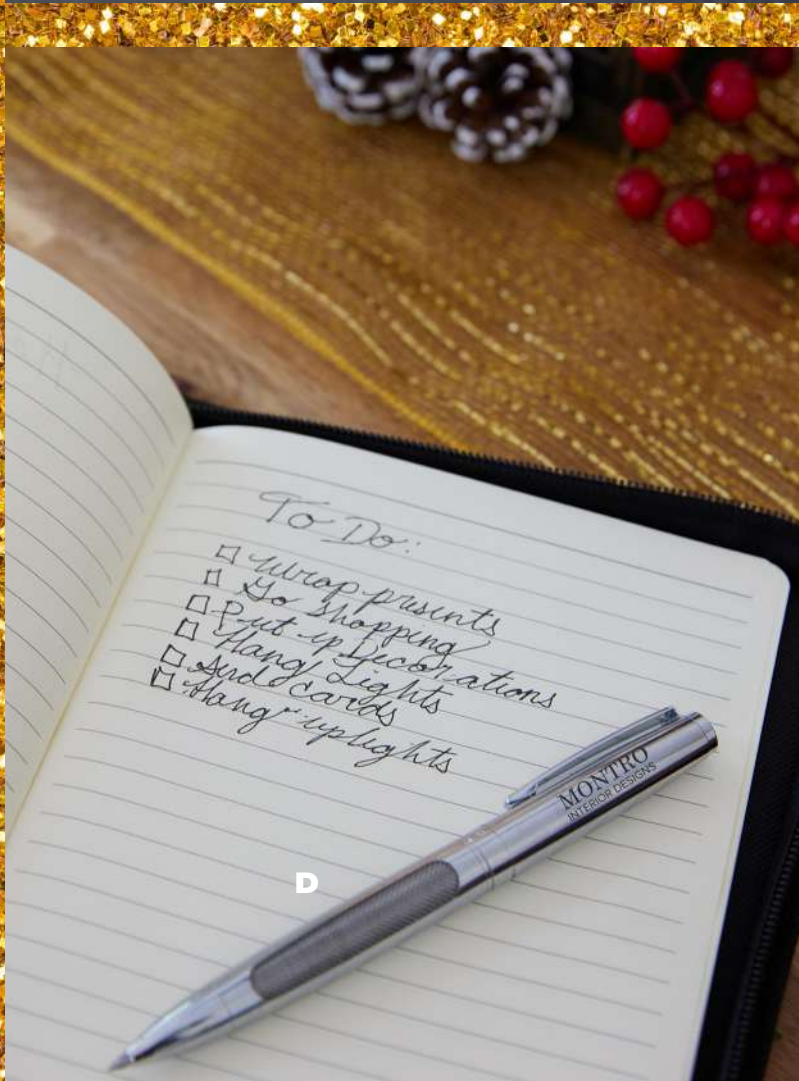 To Do:
Wrap presents
Go shopping
Put up Decorations
Hang Lights
Send cards
Hang up lights
MONTRO
INTERIOR DESIGNS
D